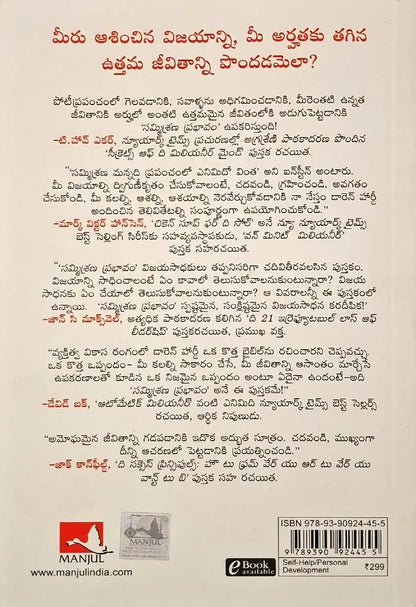 మీరు ఆశించిన విజయాన్ని, మీ అర్హతకు తగిన
ఉత్తమ జీవితాన్ని పొందడమెలా?
పోటీప్రపంచంలో గెలవడానికి, సవాళ్ళను అధిగమించడానికి, మీరెంతటి ఉన్నత
జీవితానికి అర్హులో అంతటి ఉత్తమమైన జీవితంలోకి అడుగుపెట్టడానికి
'సమ్మిశ్రణ ప్రభావం' ఉపకరిస్తుంది!
–టి.హావ్ ఎకర్, న్యూయార్క్ టైమ్స్ ప్రచురణల్లో అగ్రశ్రేణి పాఠకాదరణ పొందిన
'సీక్రెట్స్ ఆఫ్ ది మిలియనీర్ మైండ్' పుస్తక రచయిత.
"సమ్మిశ్రణ మన్నది ప్రపంచంలో ఎనిమిదో వింత" అని ఐన్‌స్టీన్ అంటారు.
మీ విజయాల్ని ద్విగుణీకృతం చేసుకోవాలంటే, చదవండి, గ్రహించండి, అవగతం
చేసుకోండి, మీ కలల్ని, ఆశల్ని, ఆశయాల్ని నెరవేర్చుకోవడానికి నా నేస్తం డారెన్ హార్డీ
అందించిన తెలివితేటల్ని సంపూర్ణంగా ఉపయోగించుకోండి."
–మార్క్ విక్టర్ హాన్‌సెన్, 'చికెన్ సూప్ ఫర్ ది సోల్' అనే న్యూ న్యూయార్క్ టైమ్స్
బెస్ట్ సెల్లింగ్ సిరీస్‌కు సహవ్యవస్థాపకుడు, 'వన్ మినిట్ మిలియనీర్'
పుస్తక సహరచయిత.
"'సమ్మిశ్రణ ప్రభావం' విజయసాధకులు తప్పనిసరిగా చదివితీరవలసిన పుస్తకం.
విజయాన్ని సాధించాలంటే ఏం కావాలో తెలుసుకోవాలనుకుంటున్నారా? విజయ
సాధనకు ఏం చేయాలో తెలుసుకోవాలనుకుంటున్నారా? ఆ వివరాలన్నీ ఈ పుస్తకంలో
ఉన్నాయి. 'సమ్మిశ్రణ ప్రభావం' స్పష్టమైన, సంక్షిప్తమైన విజయసాధన కరదీపిక!"
–జాన్ సి మాక్స్‌వెల్, అత్యధిక పాఠకాదరణ కలిగిన 'ది 21 ఇర్రెఫ్యూటబుల్ లాస్ ఆఫ్
లీడర్‌షిప్' పుస్తకరచయిత, ప్రముఖ వక్త.
"వ్యక్తిత్వ వికాస రంగంలో డారెన్ హార్డీ ఒక కొత్త బైబిల్‌ను రచించారని చెప్పవచ్చు.
ఒక కొత్త ఒప్పందం– మీ కలల్ని సాకారం చేసే, మీ జీవితాన్ని ఆసాంతం మార్చేసే
ఉపకరణాలతో కూడిన ఒక నిజమైన ఒప్పందం అంటూ ఏదైనా ఉందంటే–అది
'సమ్మిశ్రణ ప్రభావం' అనే ఈ పుస్తకమే!"
–డేవిడ్ బక్, 'ఆటోమేటిక్ మిలియనీర్' వంటి ఎనిమిది న్యూయార్క్ టైమ్స్ బెస్ట్ సెల్లర్స్
రచయిత, ఆర్థిక నిపుణుడు.
"అమోఘమైన జీవితాన్ని గడపడానికి ఇదొక అద్భుత సూత్రం. చదవండి, ముఖ్యంగా
దీన్ని ఆచరణలో పెట్టడానికి ప్రయత్నించండి."
–జాక్ కాన్‌ఫీల్డ్, 'ది సక్సెస్ ప్రిన్సిపుల్స్: హౌ టు ఫ్రమ్ వేర్ యు ఆర్ టు వేర్ యు
వాన్ట్ టు బి' పుస్తక సహ రచయిత.
MANJUL
www.manjulindia.com
eBook
available
ISBN 978-93-90924-45-5
9 789390 924455
Self-Help/Personal
Development
₹299